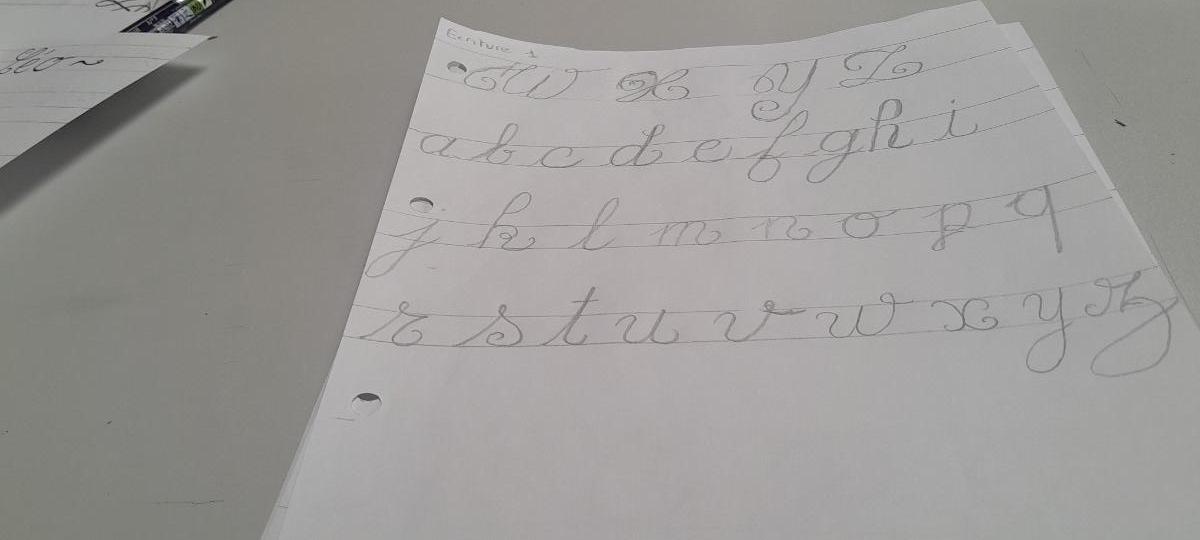 Ecriture 1
W X Y Z
a b c d e f g h i
j k l m n o p q
r s t u v w x y z